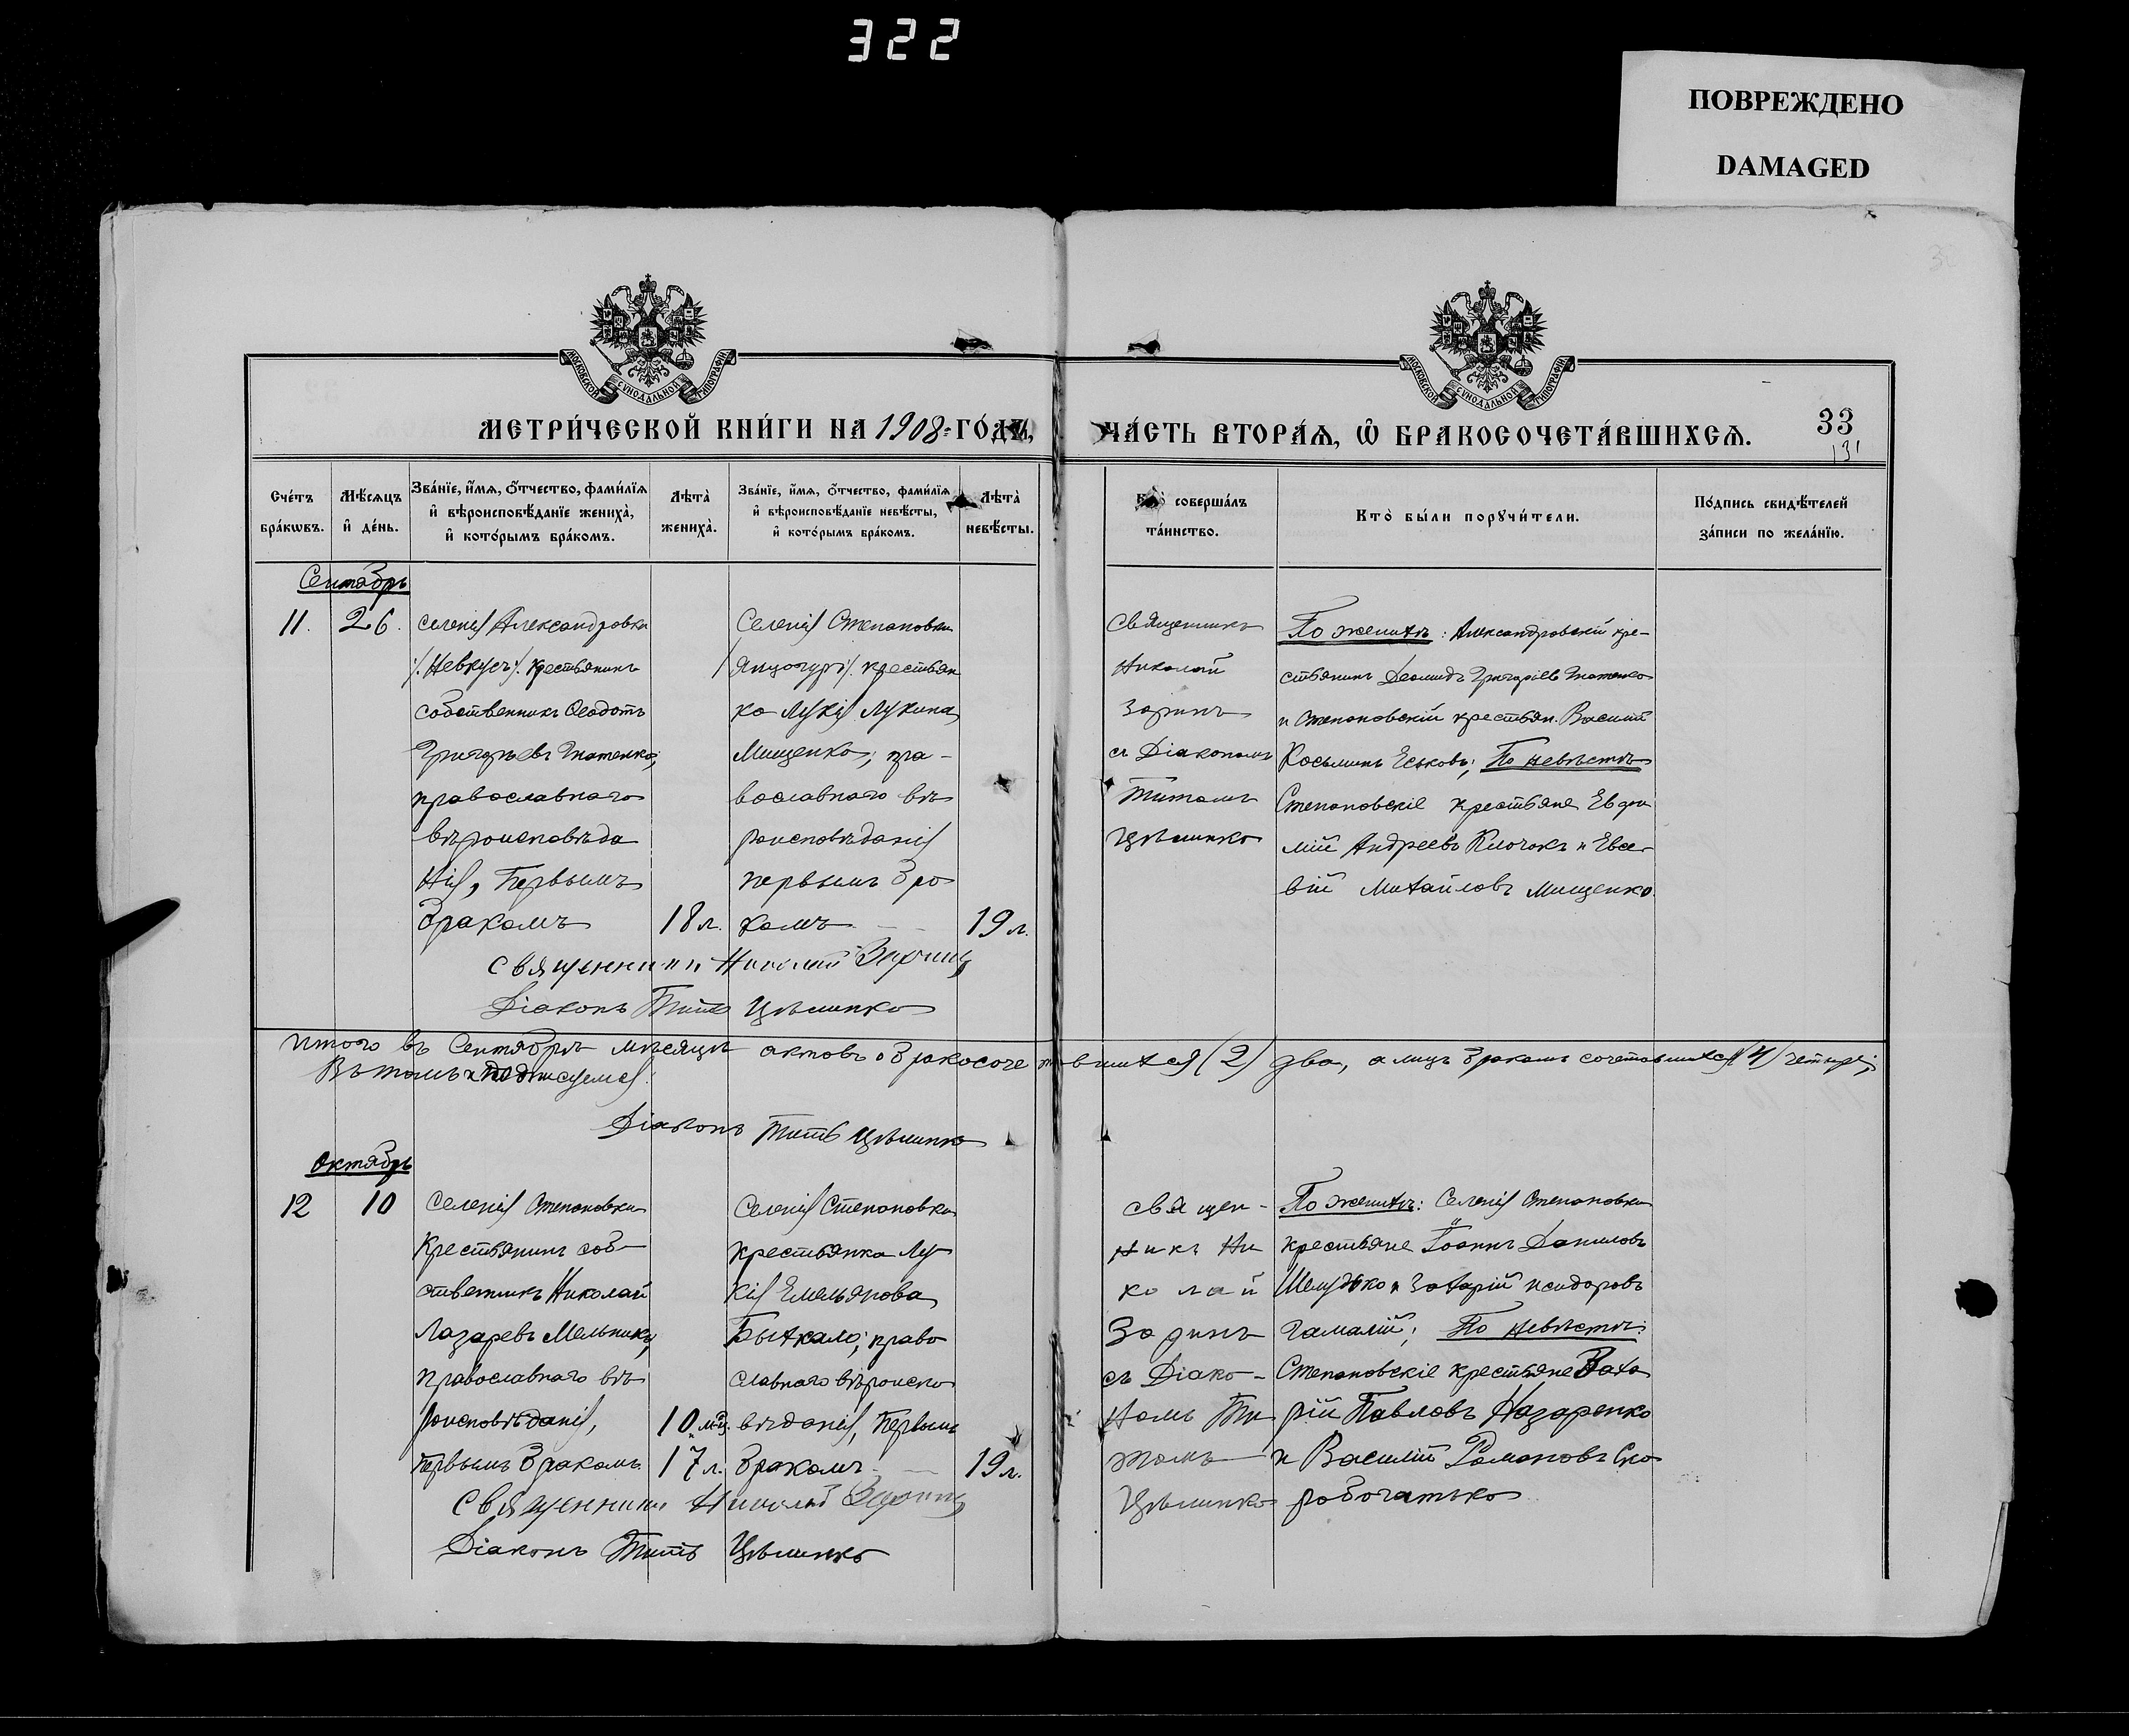 322
ПОВРЕЖДЕНО
DAMAGED
МОСКОВСКОЙ СѴНОДАЛЬНОЙ ТИПОГРАФІИ
МОСКОВСКОЙ СѴНОДАЛЬНОЙ ТИПОГРАФІИ
МЕТРИ́ЧЕСКОЙ КНИ́ГИ НА 1908 ГО́ДЪ,
ЧА́СТЬ ВТОРА́Ѧ, Ѽ БРАКОСОЧЕТА́ВШИХСѦ.
33
131
Сче́тъ бра́кѡвъ.
Мѣ́сѧцъ и҆ де́нь.
Зва́нїе, и҆́мѧ, ѻ҆́тчество, фами́лїѧ и҆ вѣроисповѣ́данїе жениха̀, и҆ кото́рымъ бра́комъ.
Лѣта̀ жениха̀.
Зва́нїе, и҆́мѧ, ѻ҆́тчество, фами́лїѧ и҆ вѣроисповѣ́данїе невѣ́сты, и҆ кото́рымъ бра́комъ.
Лѣта̀ невѣ́сты.
Кто̀ соверша́лъ та́инство.
Кто̀ бы́ли порꙋчи́тели.
По́дпись свидѣ́телей за́писи по жела́нїю.
Сентябрь
11. 26.
селенія Александровки
/:Невкусъ:/ крестьянинъ
собственникъ Ѳеодотъ
Григорьевъ Гнатенко,
православнаго
вѣроисповѣда
нія, первымъ
бракомъ
18 л.
Селенія Степановки
крестьян
ка Лукія Лукина
Мищенко, пра-
вославнаго вѣ
роисповѣданія
первымъ бра
комъ
19 л.
Священникъ
Николай
Заринъ
съ Діакономъ
Титомъ
По женихѣ: Александровскій кре-
стьянинъ Діомидъ Григоріевъ Гнатенко
и Степановскій крестьян. Василій
Косьминъ Еськовъ; По невѣстѣ
Степановскіе крестьяне Евфи
мій Андреевъ Клочокъ и Евсе-
вій Михайловъ Мищенко.
Священникъ Николай Заринъ
Діаконъ Титъ
Итого въ Сентябрѣ мѣсяцѣ актовъ о бракосочетавшихся (2) два, а лицъ бракомъ сочетавшихся (4) четыре;
Въ томъ и подписуемся:
Діаконъ Титъ
Октябрь
12 10
Селенія Степановки
Крестьянинъ соб-
ственникъ Николай
Лазаревъ Мельникъ,
православнаго вѣ
роисповѣданія,
первымъ бракомъ
10 мѣ.
17 л.
Селенія Степановки
крестьянка Лу
кія Емельянова
Быхкало; право
славнаго вѣроиспо
вѣданія, первымъ
бракомъ
19 л.
Священ-
никъ Ни
колай
Заринъ
съ Діако-
номъ Ти
томъ
По женихѣ: Селенія Степановки
крестьяне Іоаннъ Даниловъ
Шелудько и Захарій Исидоровъ
Гамалій; По невѣстѣ:
Степановскіе крестьяне Заха
рій Павловъ Назаренко
и Василій Романовъ Ско
робогатько
Священникъ Николай Заринъ
Діаконъ Титъ